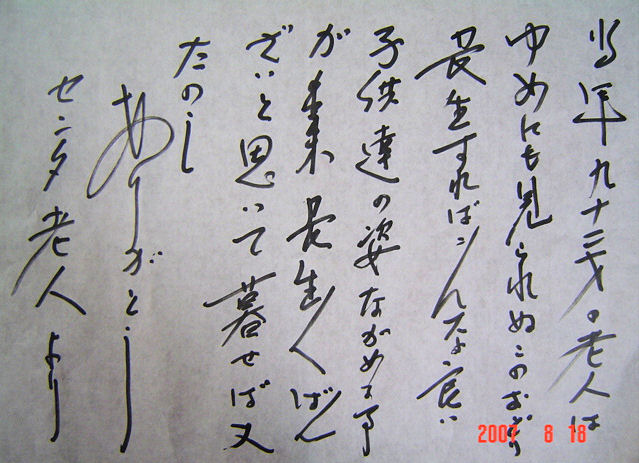 当年九十二才の老人は
ゆめにも見られぬこのおどり
長生すればこんなに良い
子供達の姿ながめる事
が出来 長生ばん
ざいと思いて暮せば又
たのし
ありがとー
センター老人より
2007 8 18